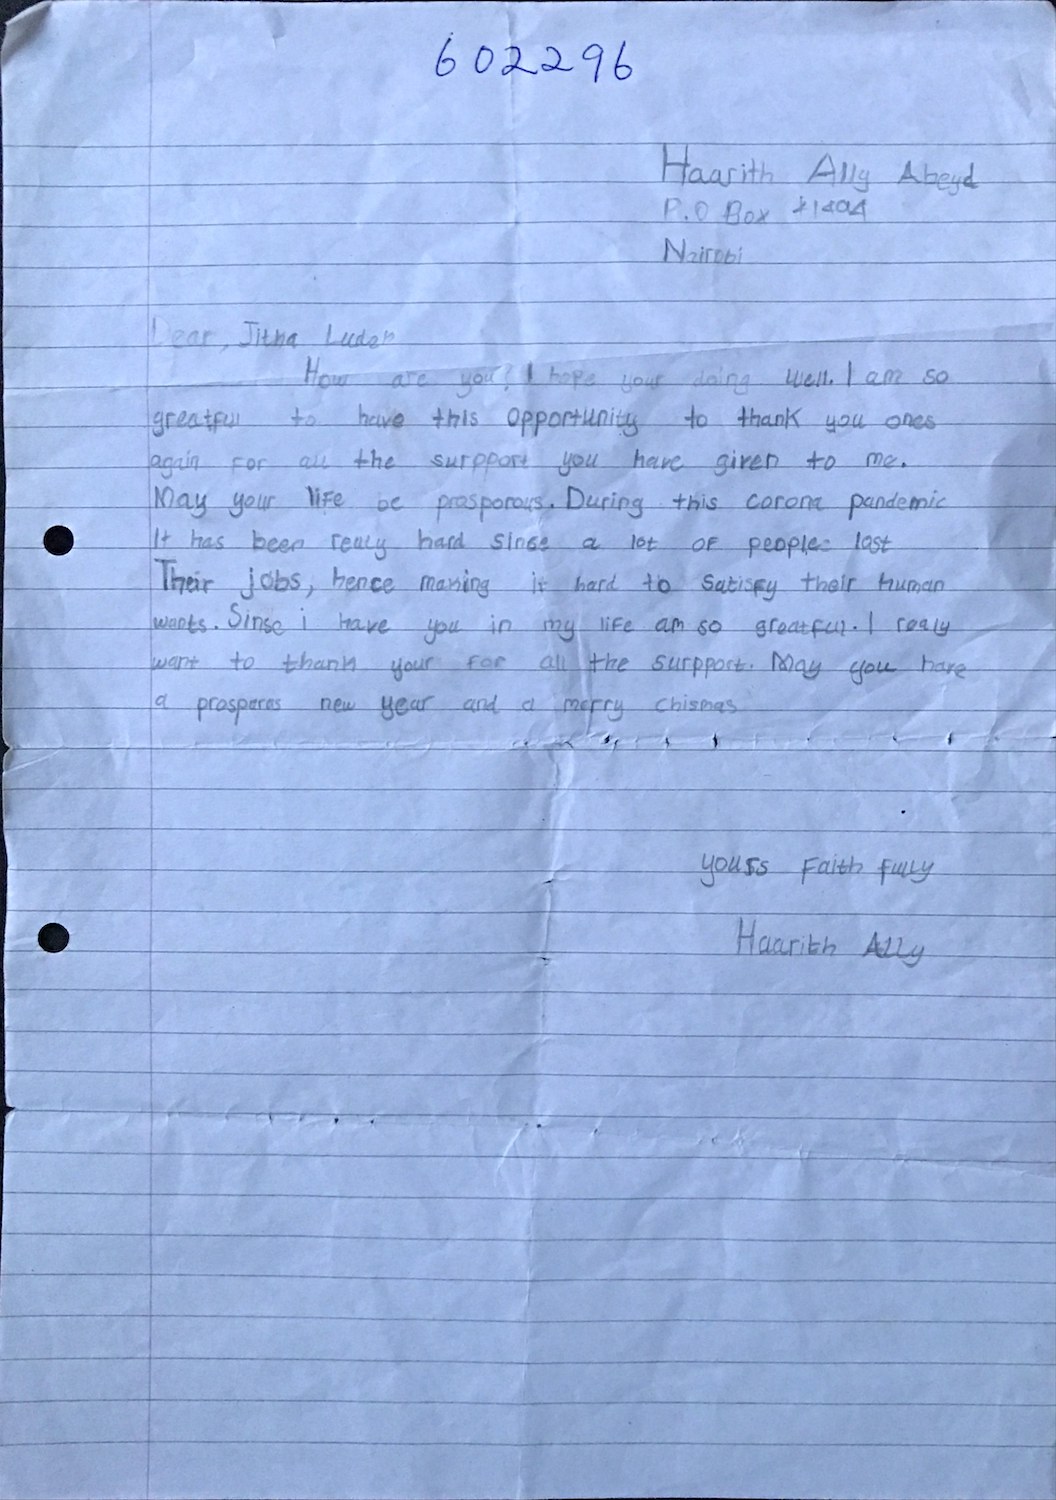 602296
Haarith Ally Abeyd
P.O Box
Nairobi
Dear, Jitha Luden
How are you? I hope your doing well. I am so
greatful to have this opportunity to thank you ones
again for all the surpport you have given to me.
May your life be prosporous. During this corona pandemic
It has been realy hard sinse a lot of people lost
Their jobs, hence making it hard to satisfy their human
wants. Sinse i have you in my life am so greatful. I realy
want to thank your for all the surpport. May you have
a prosperas new year and a merry chismas
yours Faith fully
Haarith Ally